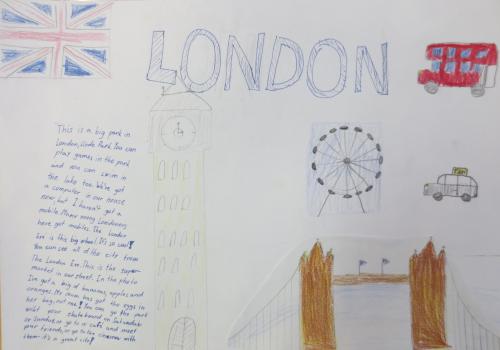 LONDON
TAXI
This is a big park in
London, Hyde Park. You can
play games in the park
and you can swim in
the lake too. We've got
a computer in our house
now but I haven't got a
mobile. Many many Londoners
have got mobiles. The London
Eye is this big wheel. It's so cool!
You can see all of the city from
The London Eye. This is the super-
market in our street. In the photo
I've got a big of bananas, apples and
oranges. My mum has got the eggs in
her bag, not me! You can go the park
with your skateboard on Saturdays
or Sundays, or go to a café and meet
your friends, or go to the cinema with
them - it's a great city!